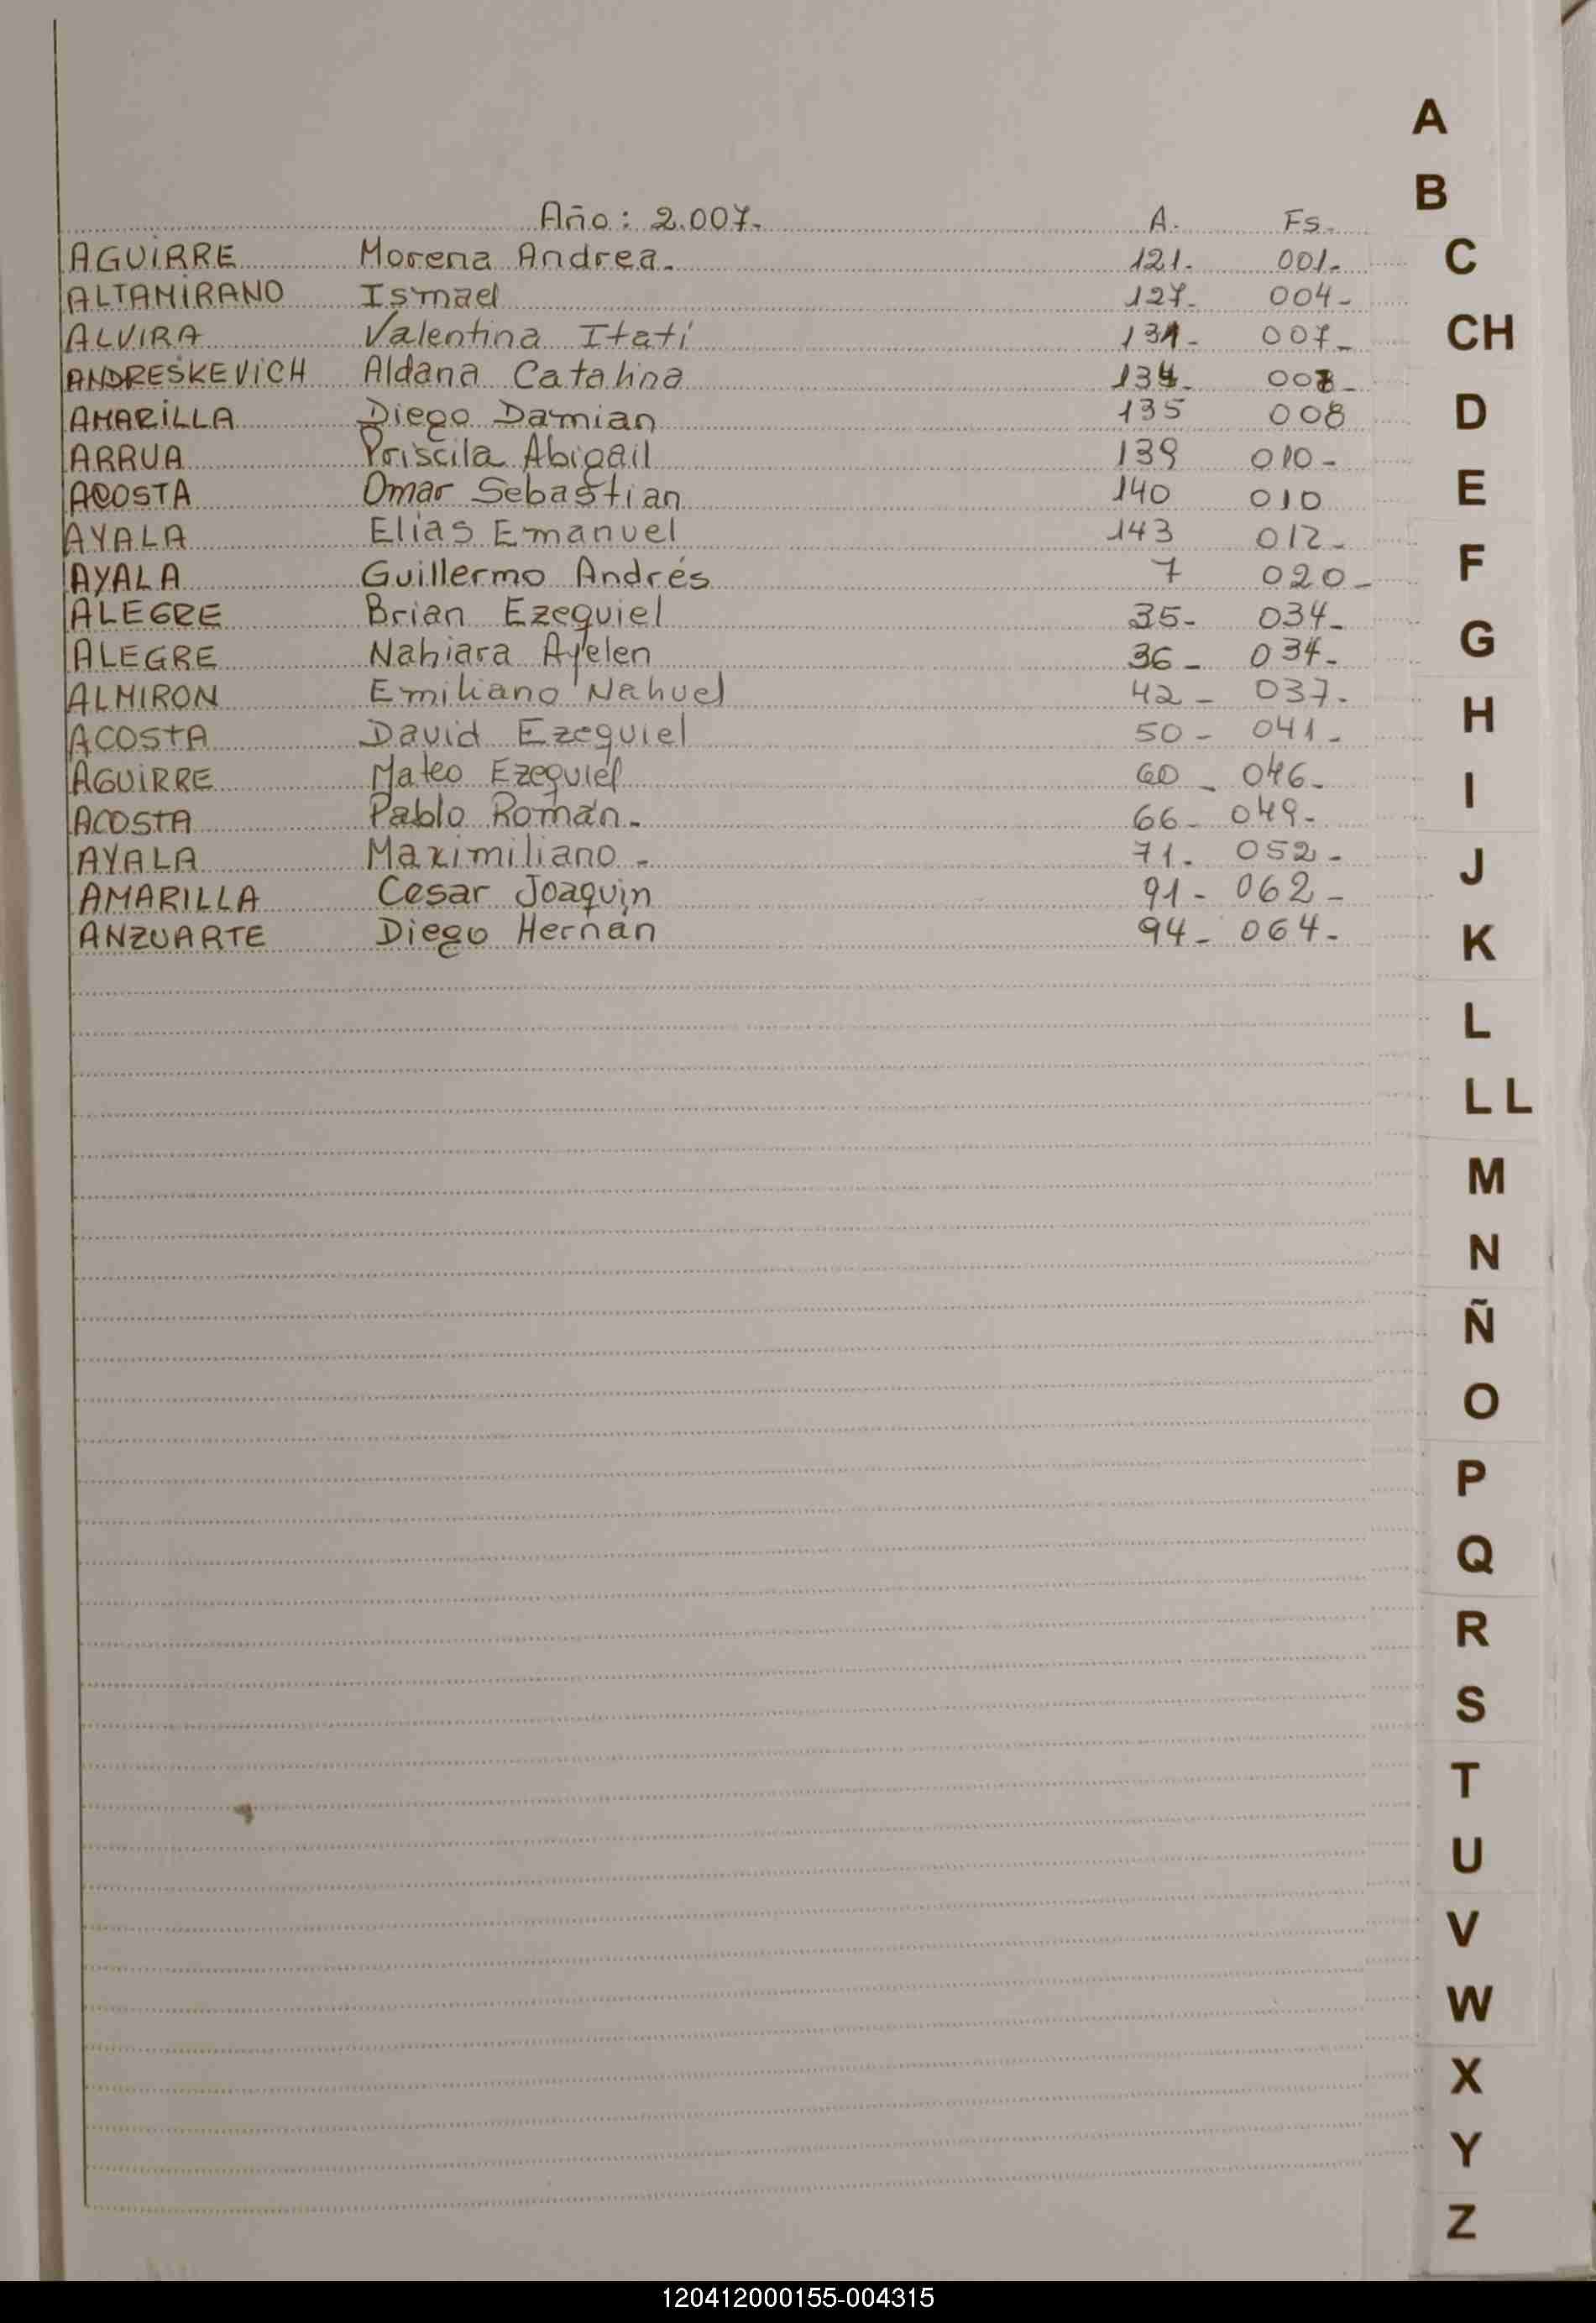 Año: 2.007. A. Fs.
AGUIRRE Morena Andrea. 121. 001.
ALTAMIRANO Ismael 127. 004-
ALVIRA Valentina Itatí 131- 007-
ANDRESKEVICH Aldana Catalina 134. 008-
AMARILLA Diego Damian 135 008
ARRUA Priscila Abigail 139 010-
ACOSTA Omar Sebastian 140 010
AYALA Elias Emanuel 143 012-
AYALA Guillermo Andrés 7 020-
ALEGRE Brian Ezequiel 35- 034-
ALEGRE Nahiara Ayelen 36- 034-
ALMIRON Emiliano Nahuel 42- 037-
ACOSTA David Ezequiel 50- 041-
AGUIRRE Mateo Ezequiel 60- 046-
ACOSTA Pablo Román. 66- 049-
AYALA Maximiliano - 71. 052-
AMARILLA Cesar Joaquin 91- 062-
ANZUARTE Diego Hernán 94- 064-
A
B
C
CH
D
E
F
G
H
I
J
K
L
LL
M
N
Ñ
O
P
Q
R
S
T
U
V
W
X
Y
Z
120412000155-004315